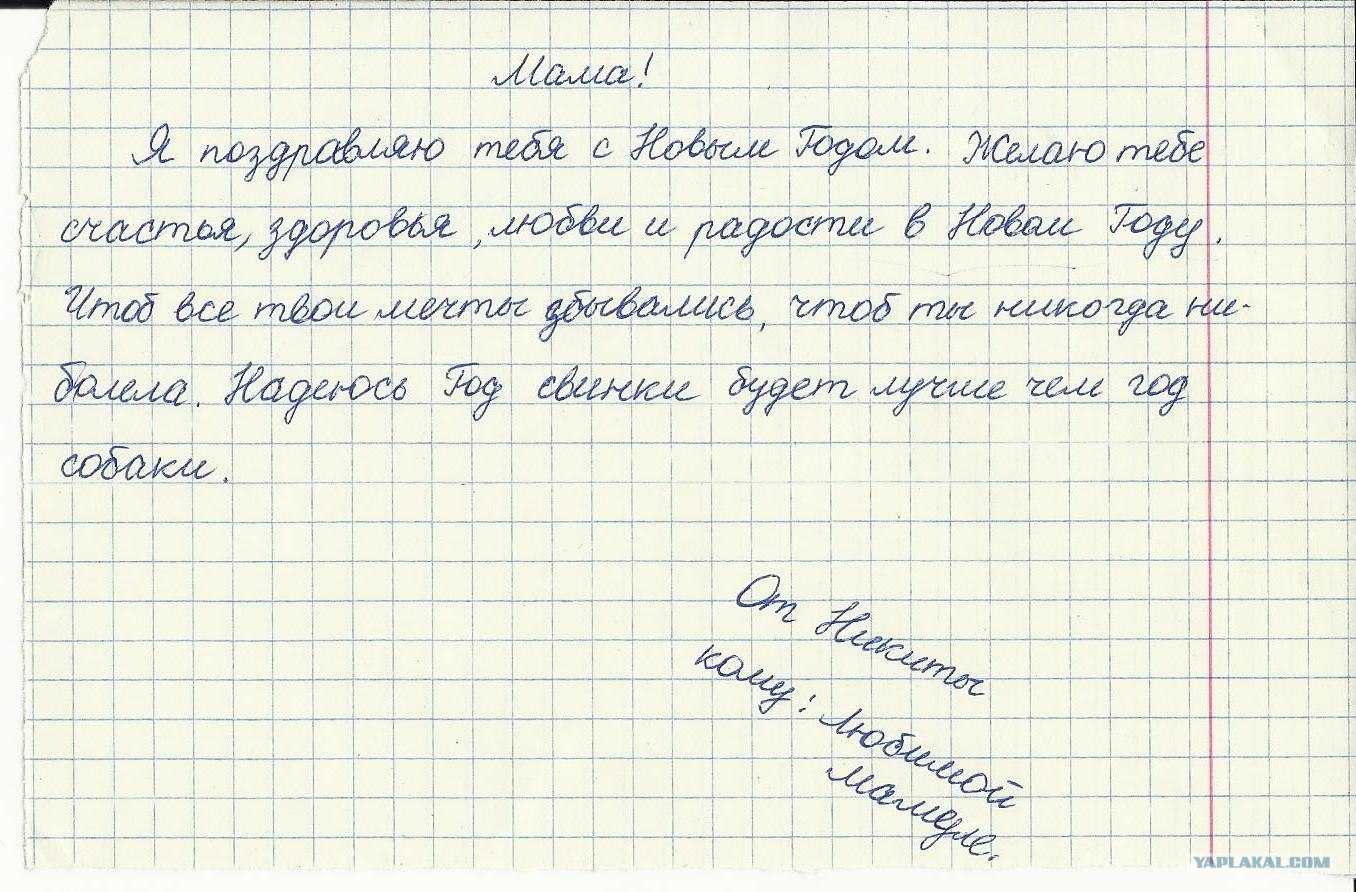 Мама!
Я поздравляю тебя с Новым Годом. Желаю тебе
счастья, здоровья, любви и радости в Новом Году.
Чтоб все твои мечты збывались, чтоб ты никогда ни-
болела. Надеюсь Год свинки будет лучше чем год
собаки.
От Никиты
кому: Любимой
мамуле.
YAPLAKAL.COM